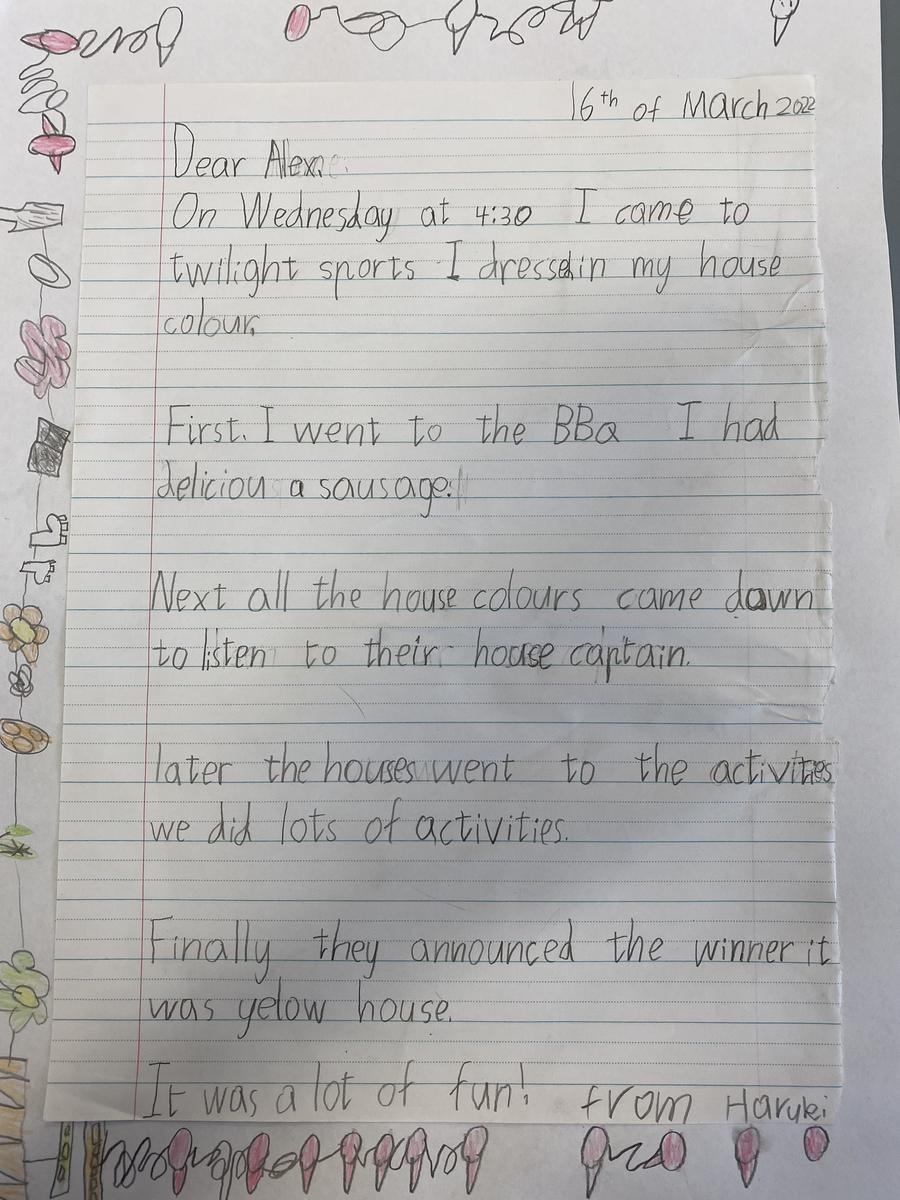 16th of March 2022
Dear Alex.
On Wednesday at 4:30 I came to
twilight sports I dressed in my house
colour.
First. I went to the BBq I had
deliciou a sausage.
Next all the house colours came down
to listen to their house captain.
later the houses went to the activities
we did lots of activities.
Finally they announced the winner it
was yelow house.
It was a lot of fun! from Haruki